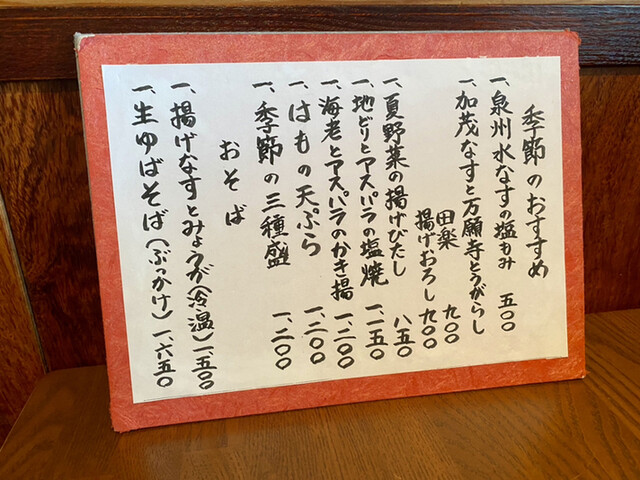 季節のおすすめ
一、泉州水なすの塩もみ 五〇〇
一、加茂なすと万願寺とうがらし
田楽 九〇〇
揚げおろし 九〇〇
一、夏野菜の揚げびたし 八五〇
一、地どりとアスパラの塩焼 一、一五〇
一、海老とアスパラのかき揚 一、二〇〇
一、はもの天ぷら 一、二〇〇
一、季節の三種盛 一、二〇〇
おそば
一、揚げなすとみょうが(冷温) 一、五〇〇
一、生ゆばそば(ぶっかけ) 一、六五〇